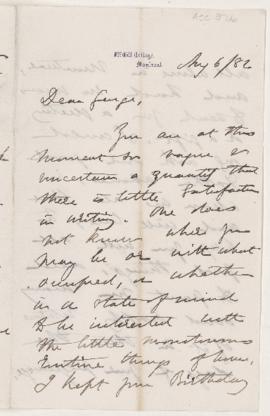 McGill College,
Montreal
Aug 6/82
Dear George,
You are at this
moment so vague &
uncertain a quantity that
there is little satisfaction
in writing. One does
not know where you
may be or with what
occupied, or whether
in a state of mind
to be interested with
the little monotonous
routine things of home.
I kept your Birthday